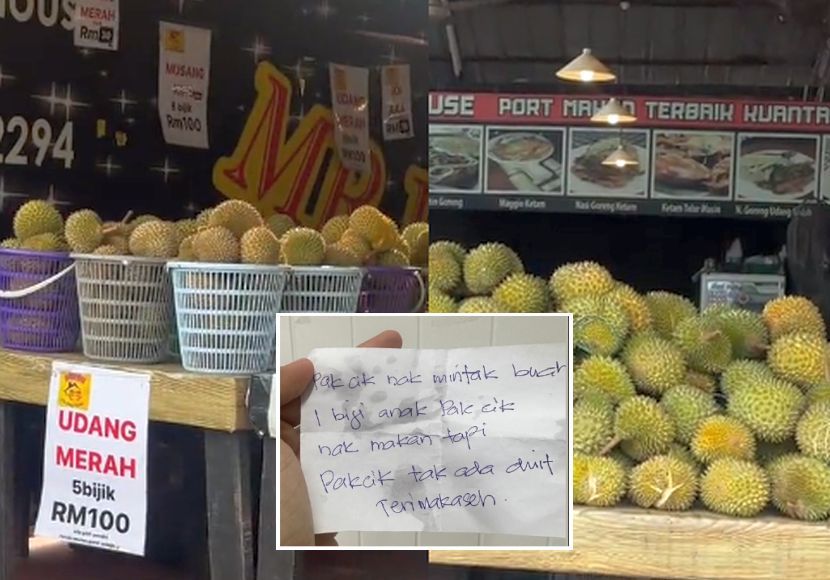 MERAH
2294
MUSANG
8 bijik
Rm100
UDANG
MERAH
USE PORT MAKAN TERBAIK KUANTA
Maggie Ketam
Nasi Goreng Ketam
Ketam Telur Masin
N. Goreng Udang
UDANG
MERAH
5bijik
RM100
Pak cik nak mintak buah
1 biji anak Pak cik
nak makan tapi
Pakcik tak ada duit
Terimakaseh.